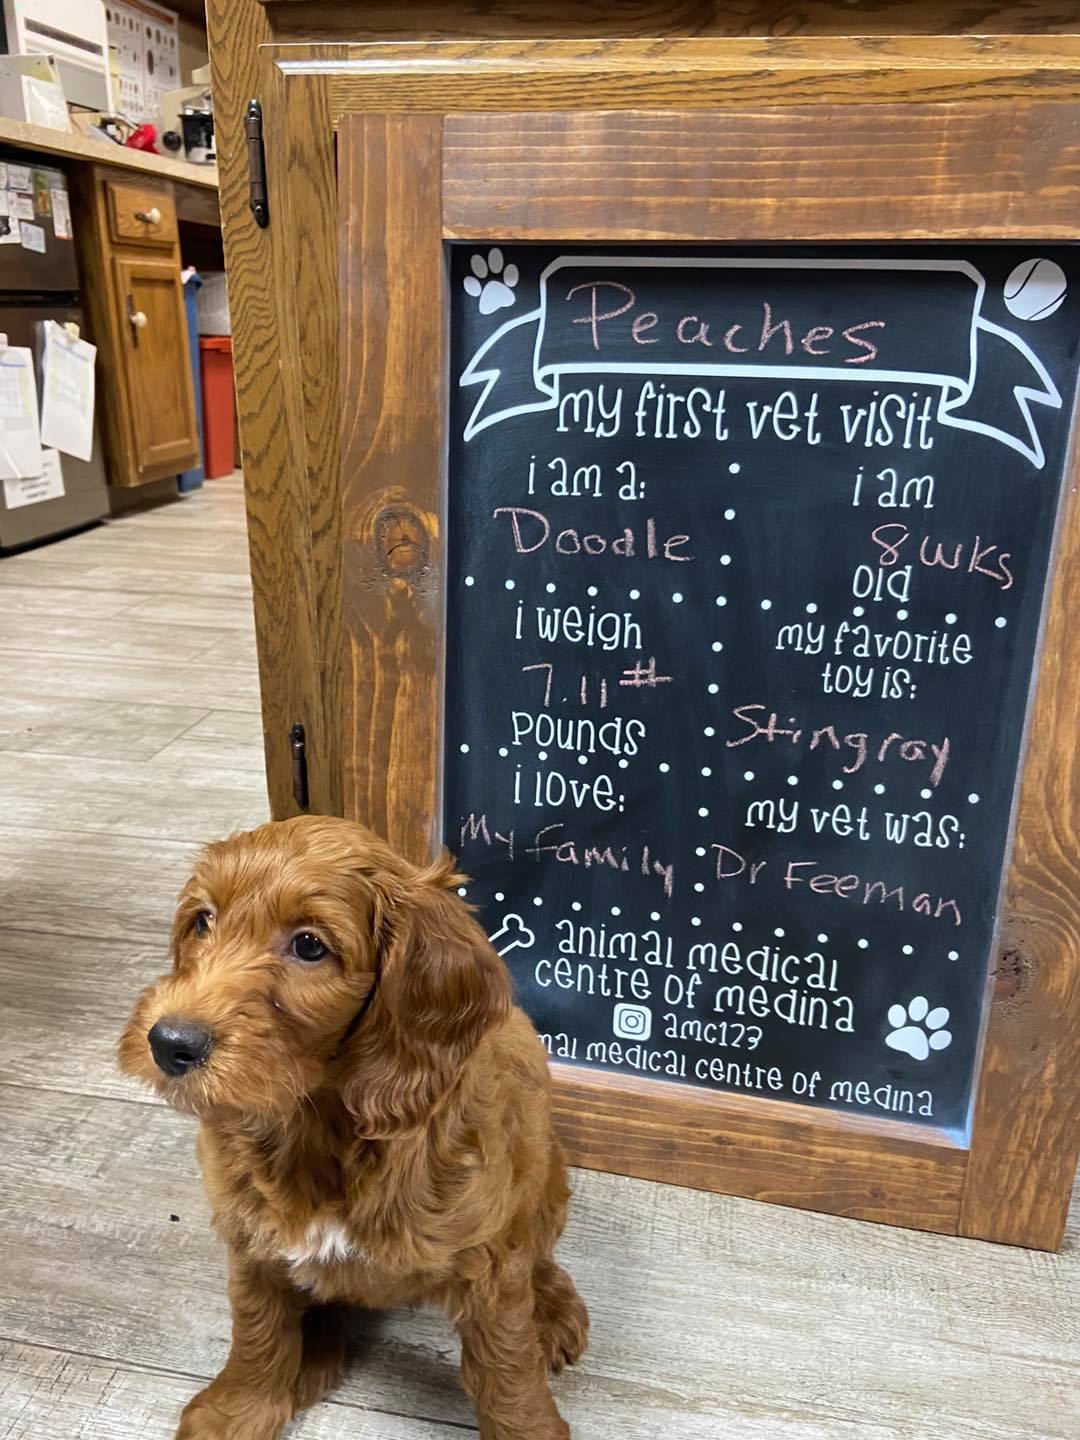 Peaches
my first vet visit
i am a:
Doodle
i am
8 wks
old
i weigh
7.11#
pounds
my favorite
toy is:
Stingray
i love:
My Family
my vet was:
Dr Feeman
animal medical
centre of medina
amc123
mal medical centre of medina